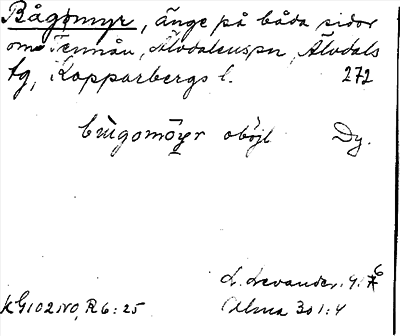 Bågomyr, änge på båda sidor
om Tennån, Älvdalens sn, Älvdals
tg, Kopparbergs l. 272
bu̇gomö̀yr oböjl Dy.
L. Levander. 9.
kG102NO, R6:25 Alma 301:4